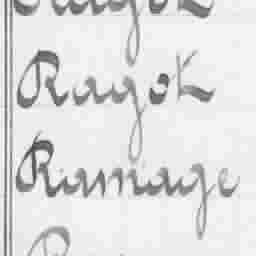 Ragot
Ramage